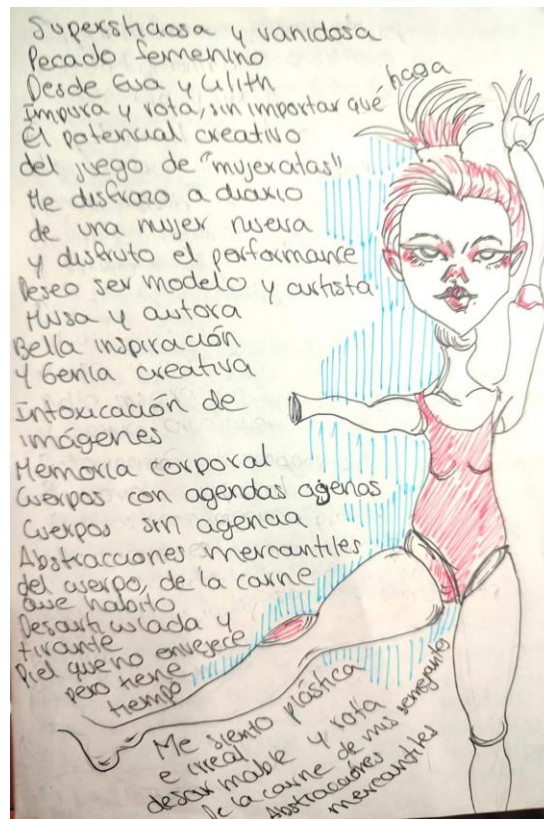 Supersticiosa y vanidosa
Pecado femenino
Desde Eva y Lilith
Impura y rota, sin importar qué haga
El potencial creativo
del juego de "mujeratas"
Me disfrazo a diario
de una mujer nueva
y disfruto el performance
Deseo ser modelo y artista
Musa y autora
Bella inspiración
y Genia creativa
Intoxicación de
imágenes
Memoria corporal
Cuerpos con agendas agenas
Cuerpos sin agencia
Abstracciones mercantiles
del cuerpo, de la carne
que habito
Desarticulada y
tirante
Piel que no envejece
pero tiene
tiempo
Me siento plástica
e irreal
desarmable y rota
De la carne de mis semejantes
Abstracciones
mercantiles